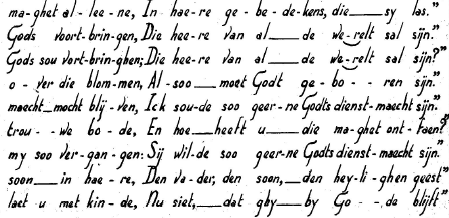 ma-ghet al-lee-ne, In hae-re ge-be-de-kens, die___sy las."
Gods voort-brin-gen, Die hee-re van al___de we-relt sal sijn."
Gods sou vort-brin-ghen; Die hee-re van al___de we-relt sal sijn?"
o-ver die blom-men, Al-soo___moet Godt ge-bo--ren sijn."
maecht_mocht blij-ven, Ick sou-de soo geer-ne Godts dienst-maecht sijn."
trou--we bo-de, En hoe___heeft u___die ma-ghet ont-faen?"
my soo ver-gan-gen: Sij wil-de soo geer-ne Godts dienst-maecht sijn."
soon___in hae-re, Den va-der, den soon,__den hey-li-ghen geest!"
laet u met kin-de, Nu siet,___dat ghy___by Go--de blijft"